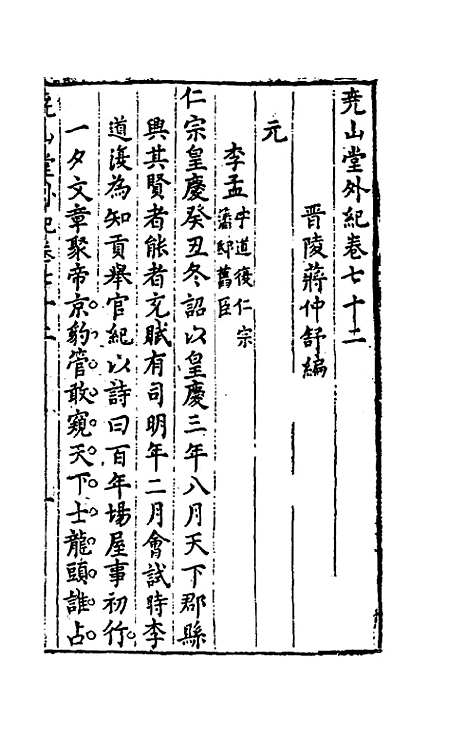 尭山堂外紀卷七十二
晋陵蔣仲舒編
元
李孟 字道復仁宗
潛邸舊臣
仁宗皇慶癸丑冬詔以皇慶三年八月天下郡縣
興其賢者能者充賦有司明年二月會試時李
道復為知貢舉官紀以詩曰百年場屋事初行
一夕文章聚帝京豹管敢窺天下士龍頭誰占